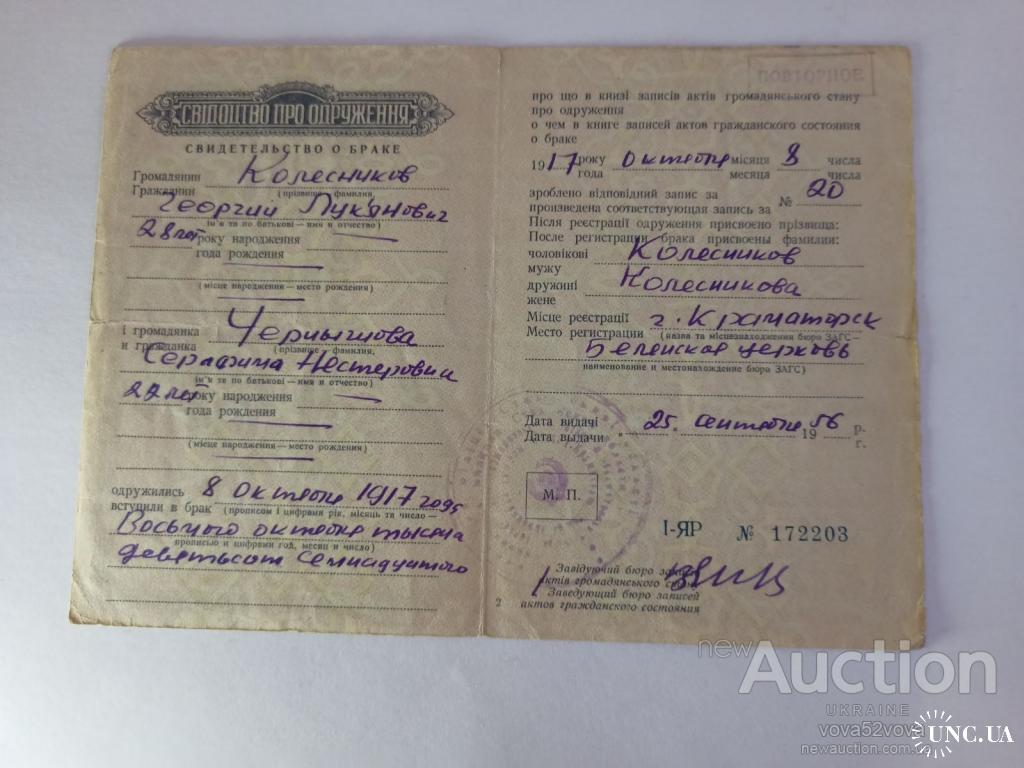 СВІДОЦТВО ПРО ОДРУЖЕННЯ
СВИДЕТЕЛЬСТВО О БРАКЕ
Громадянин Колесников
Гражданин
(прізвище — фамилия,
Георгий Лукянович
ім'я та по батькові — имя и отчество)
28 лет року народження
года рождения
(місце народження — место рождения)
і громадянка Чернышова
и гражданка
(прізвище — фамилия,
Серафима Нестеровна
ім'я та по батькові — имя и отчество)
22 лет року народження
года рождения
(місце народження — место рождения)
одружились 8 октября 1917 года
вступили в брак (прописом і цифрами рік, місяць та число —
Восьмого октября тысяча
прописью и цифрами год, месяц и число)
девятьсот семнадцатого
ПОВТОРНОЕ
про що в книзі записів актів громадянського стану
про одруження
о чем в книге записей актов гражданского состояния
о браке
1917 року октября місяця 8 числа
года месяца числа
зроблено відповідний запис за № 20
произведена соответствующая запись за
Після реєстрації одруження присвоєно прізвища:
После регистрации брака присвоены фамилии:
чоловікові Колесников
мужу
дружині Колесникова
жене
Місце реєстрації г. Краматорск
Место регистрации (назва та місцезнаходження бюро ЗАГС —
церковь
наименование и местонахождение бюро ЗАГС)
Дата видачі 25. сентября 1956 р.
Дата выдачи г.
М. П.
I-ЯР № 172203
Завідуючий бюро записів
актів громадянського стану
Заведующий бюро записей
актов гражданского состояния
2
newAuction
UKRAINE
vova52vova
newauction.com.ua
UNC.UA